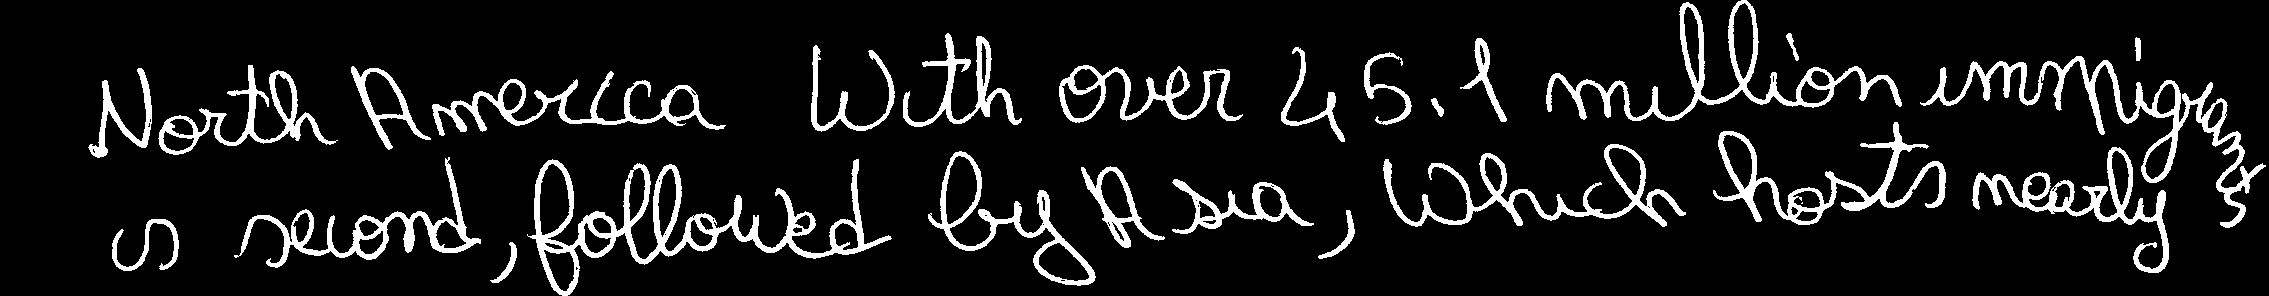 North America With over 45.1 million immigrants
is second, followed by Asia, which hosts nearly